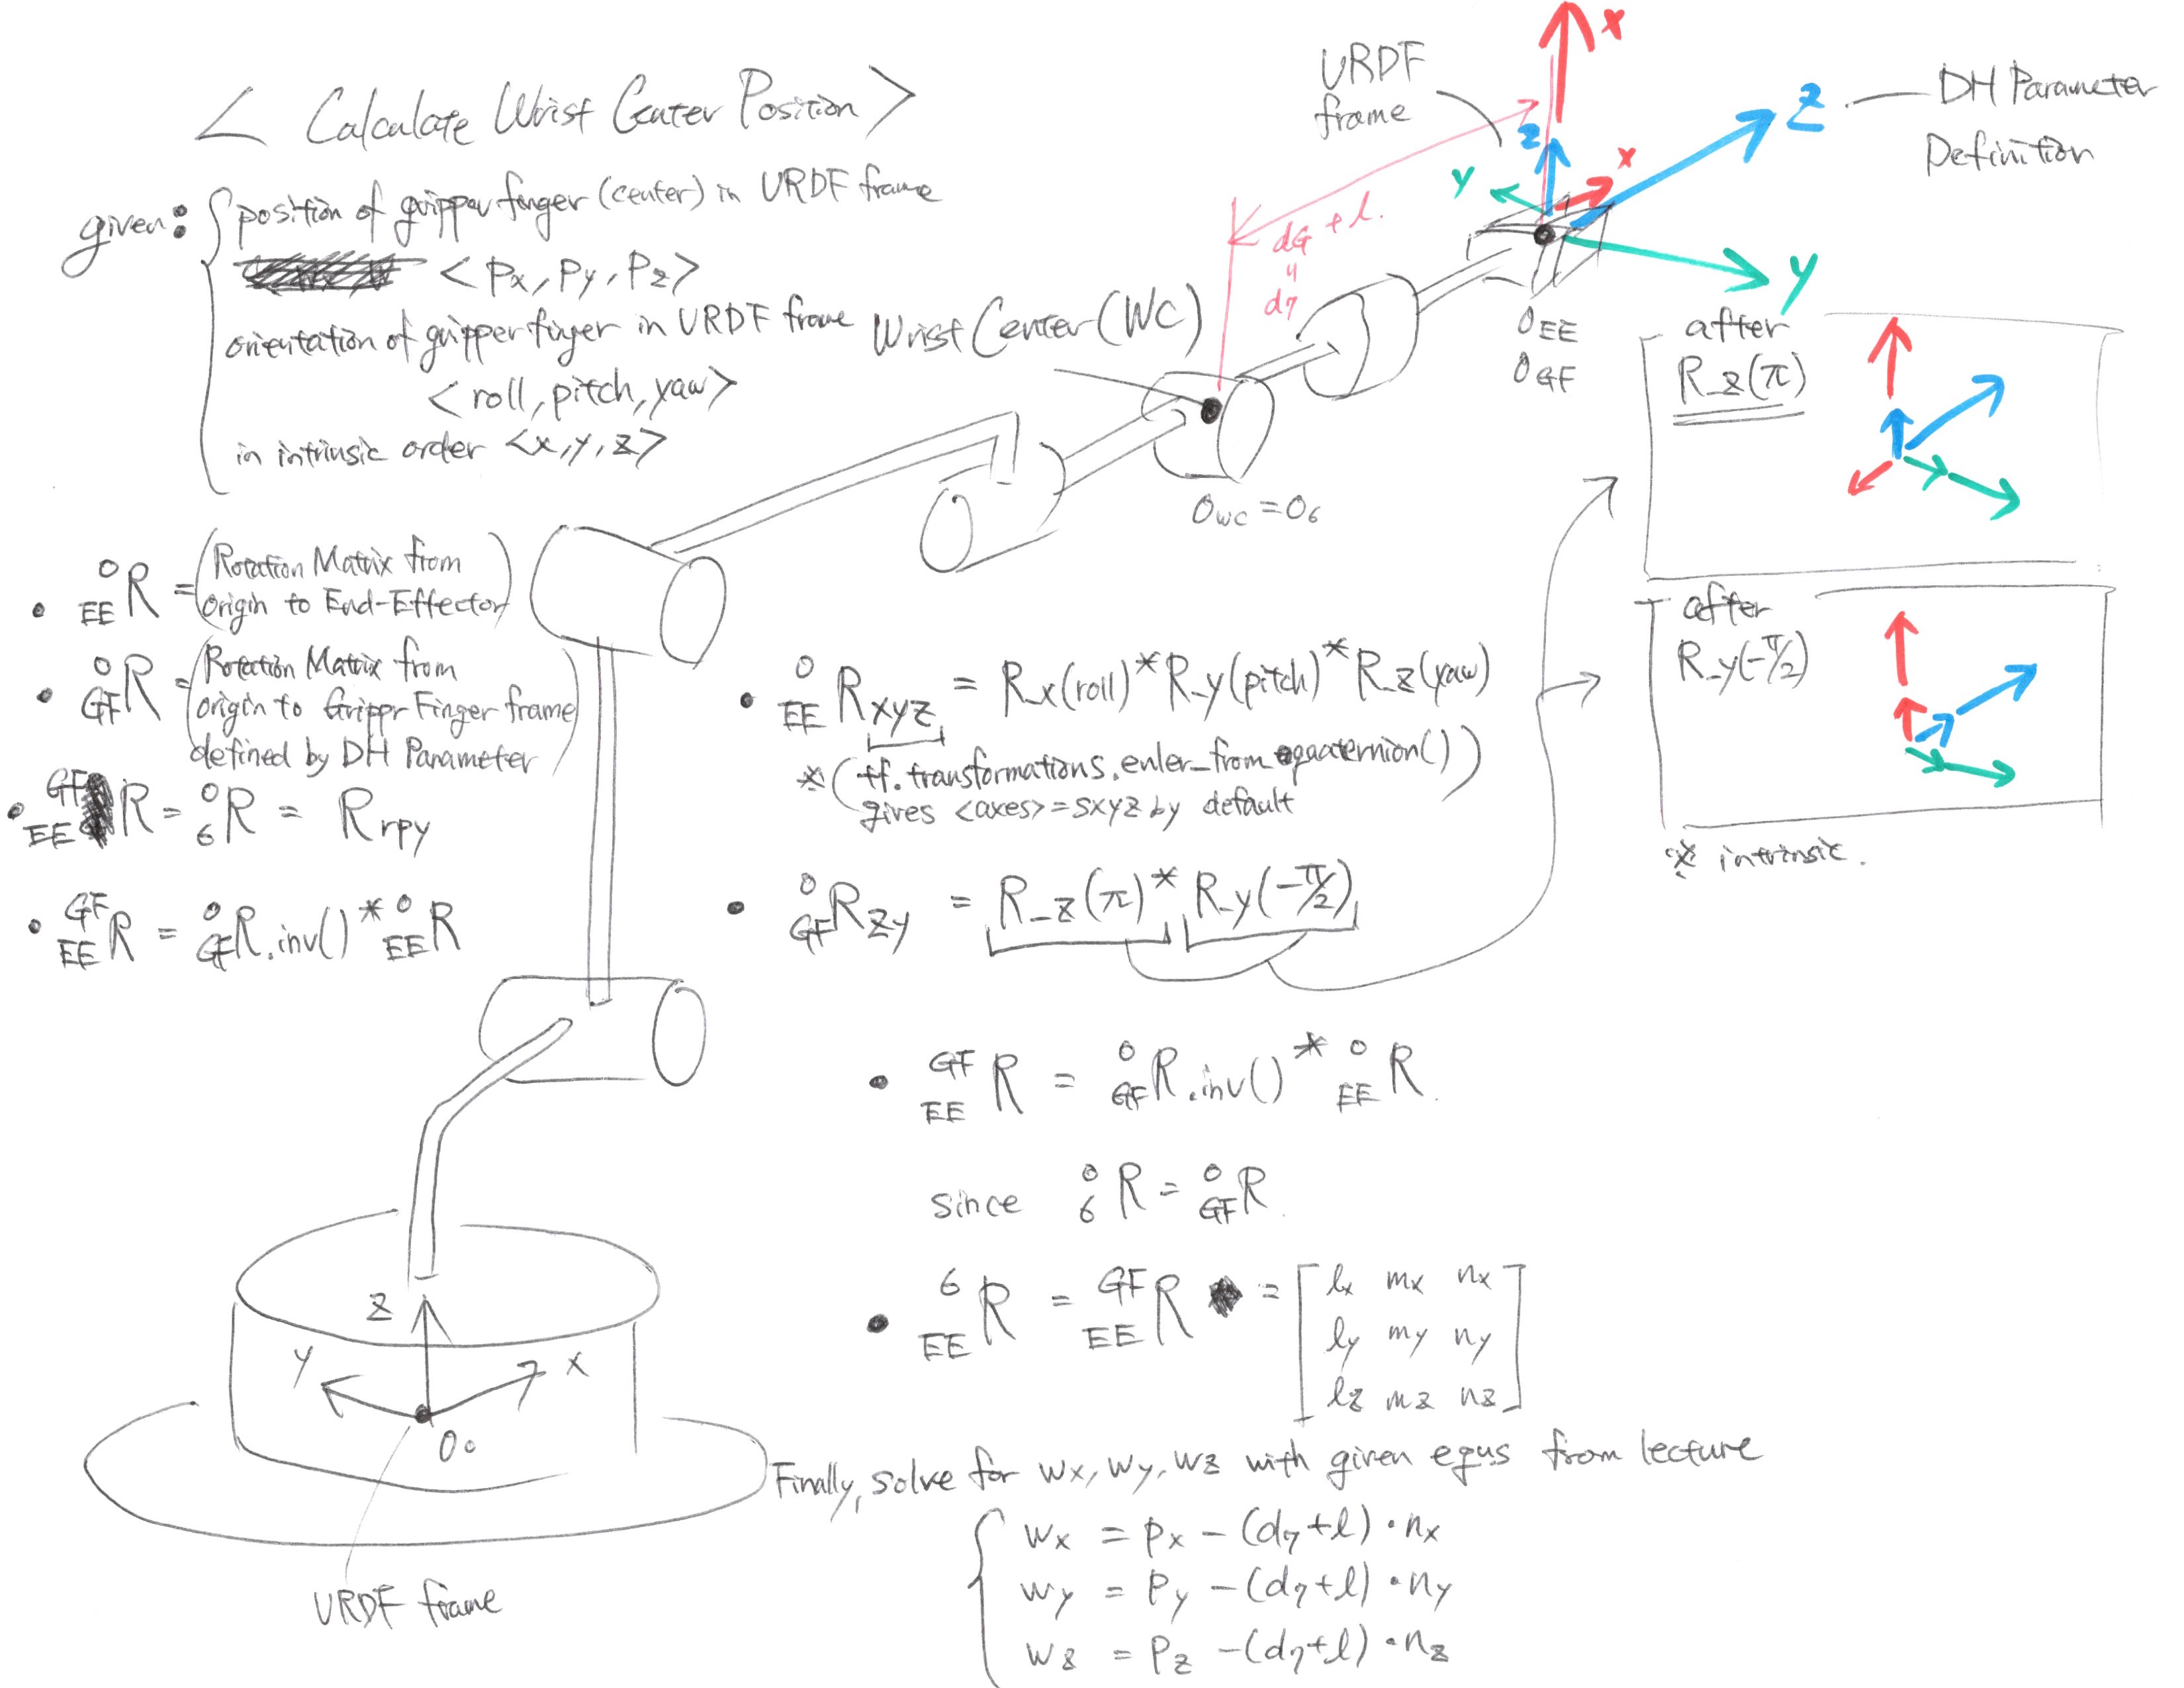 < Calculate Wrist Center Position >
given: position of gripper finger (center) in URDF frame
< Px, Py, Pz >
orientation of gripper finger in URDF frame
< roll, pitch, yaw >
in intrinsic order <x, y, z>
URDF
frame
x
z
DH Parameter
Definition
z
x
y
y
dG + l.
"
d7
Wrist Center (WC)
O EE
O GF
Owc = O6
after
R_z(π)
after
R_y(-π/2)
※ intrinsic.
• 0 EE R = (Rotation Matrix from
origin to End-Effector)
• 0 GF R = (Rotation Matrix from
origin to Grippr Finger frame
defined by DH Parameter)
• GF EE R = 0 6 R = R rpy
• GF EE R = 0 GF R.inv() * 0 EE R
• 0 EE R xyz = R_x(roll) * R_y(pitch) * R_z(yaw)
※ (tf.transformations.euler_from_quaternion()
gives <axes> = sxyz by default)
• 0 GF R zy = R_z(π) * R_y(-π/2)
• GF EE R = 0 GF R.inv() * 0 EE R.
since 0 6 R = 0 GF R.
• 6 EE R = GF EE R = [ lx mx nx
ly my ny
lz mz nz ]
z
y
x
O0
URDF frame
Finally, solve for wx, wy, wz with given equs from lecture
wx = px - (d7+l) · nx
wy = py - (d7+l) · ny
wz = pz - (d7+l) · nz